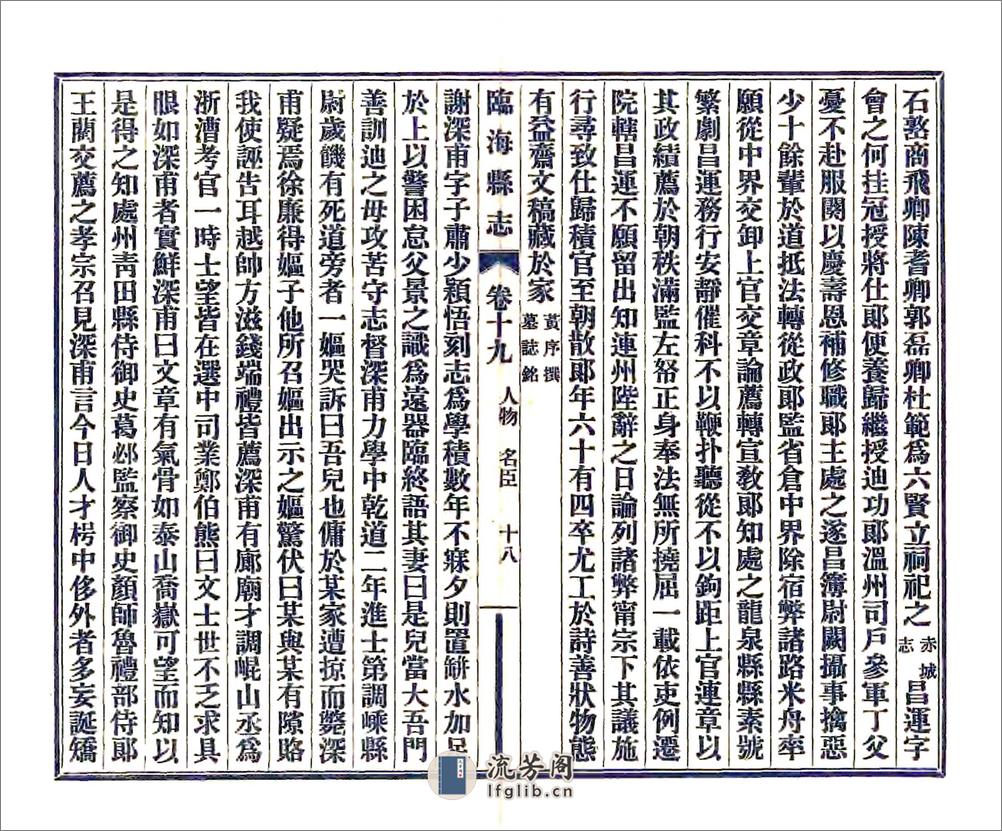 石𡼖商飛卿陳耆卿郭磊卿杜範爲六賢立祠祀之赤城志昌運字
會之何挂冠授將仕郞便養歸繼授迪功郞溫州司戶參軍丁父
憂不赴服闋以慶壽恩補修職郞主處之遂昌簿尉闕攝事擒惡
少十餘輩於道抵法轉從政郞監省倉中界除宿弊諸路米舟率
願從中界交卸上官交章論薦轉宣敎郞知處之龍泉縣縣素號
繁劇昌運務行安靜催科不以鞭扑聽從不以鉤距上官連章以
其政績薦於朝秩滿監左帑正身奉法無所撓屈一載依吏例遷
院轄昌運不願留出知連州陛辭之日論列諸弊甯宗下其議施
行尋致仕歸積官至朝散郞年六十有四卒尤工於詩善狀物態
有益齋文稿藏於家黃序撰墓誌銘
臨海縣志 卷十九 人物 名臣 十八
謝深甫字子肅少穎悟刻志爲學積數年不寐夕則置缾水加足
於上以警困怠父景之識爲遠器臨終語其妻曰是兒當大吾門
善訓迪之母攻苦守志督深甫力學中乾道二年進士第調嵊縣
尉歲饑有死道旁者一嫗哭訴曰吾兒也傭於某家遭掠而斃深
甫疑焉徐廉得嫗子他所召嫗出示之嫗驚伏曰某與某有隙賂
我使誣告耳越帥方滋錢端禮皆薦深甫有廊廟才調崐山丞爲
浙漕考官一時士望皆在選中司業鄭伯熊曰文士世不乏求具
眼如深甫者實鮮深甫曰文章有氣骨如泰山喬嶽可望而知以
是得之知處州靑田縣侍御史葛邲監察御史顏師魯禮部侍郞
王藺交薦之孝宗召見深甫言今日人才枵中侈外者多妄誕矯
流芳阁
lfglib.cn